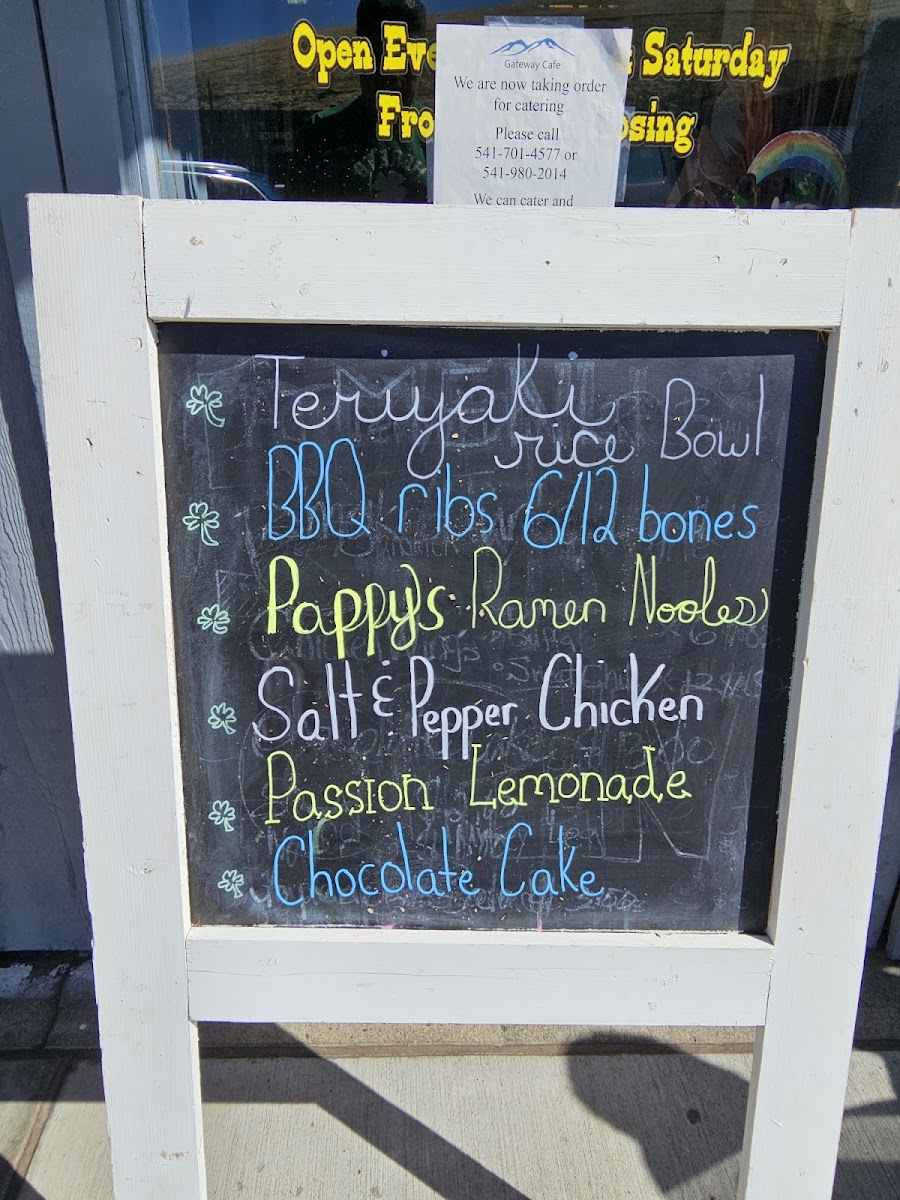 Open Eve Saturday
Fro osing
Gateway Cafe
We are now taking order
for catering
Please call
541-701-4577 or
541-980-2014
We can cater and
Teriyaki
rice Bowl
BBQ ribs 6/12 bones
Pappy's Ramen Nooles
Salt & Pepper Chicken
Passion Lemonade
Chocolate Cake